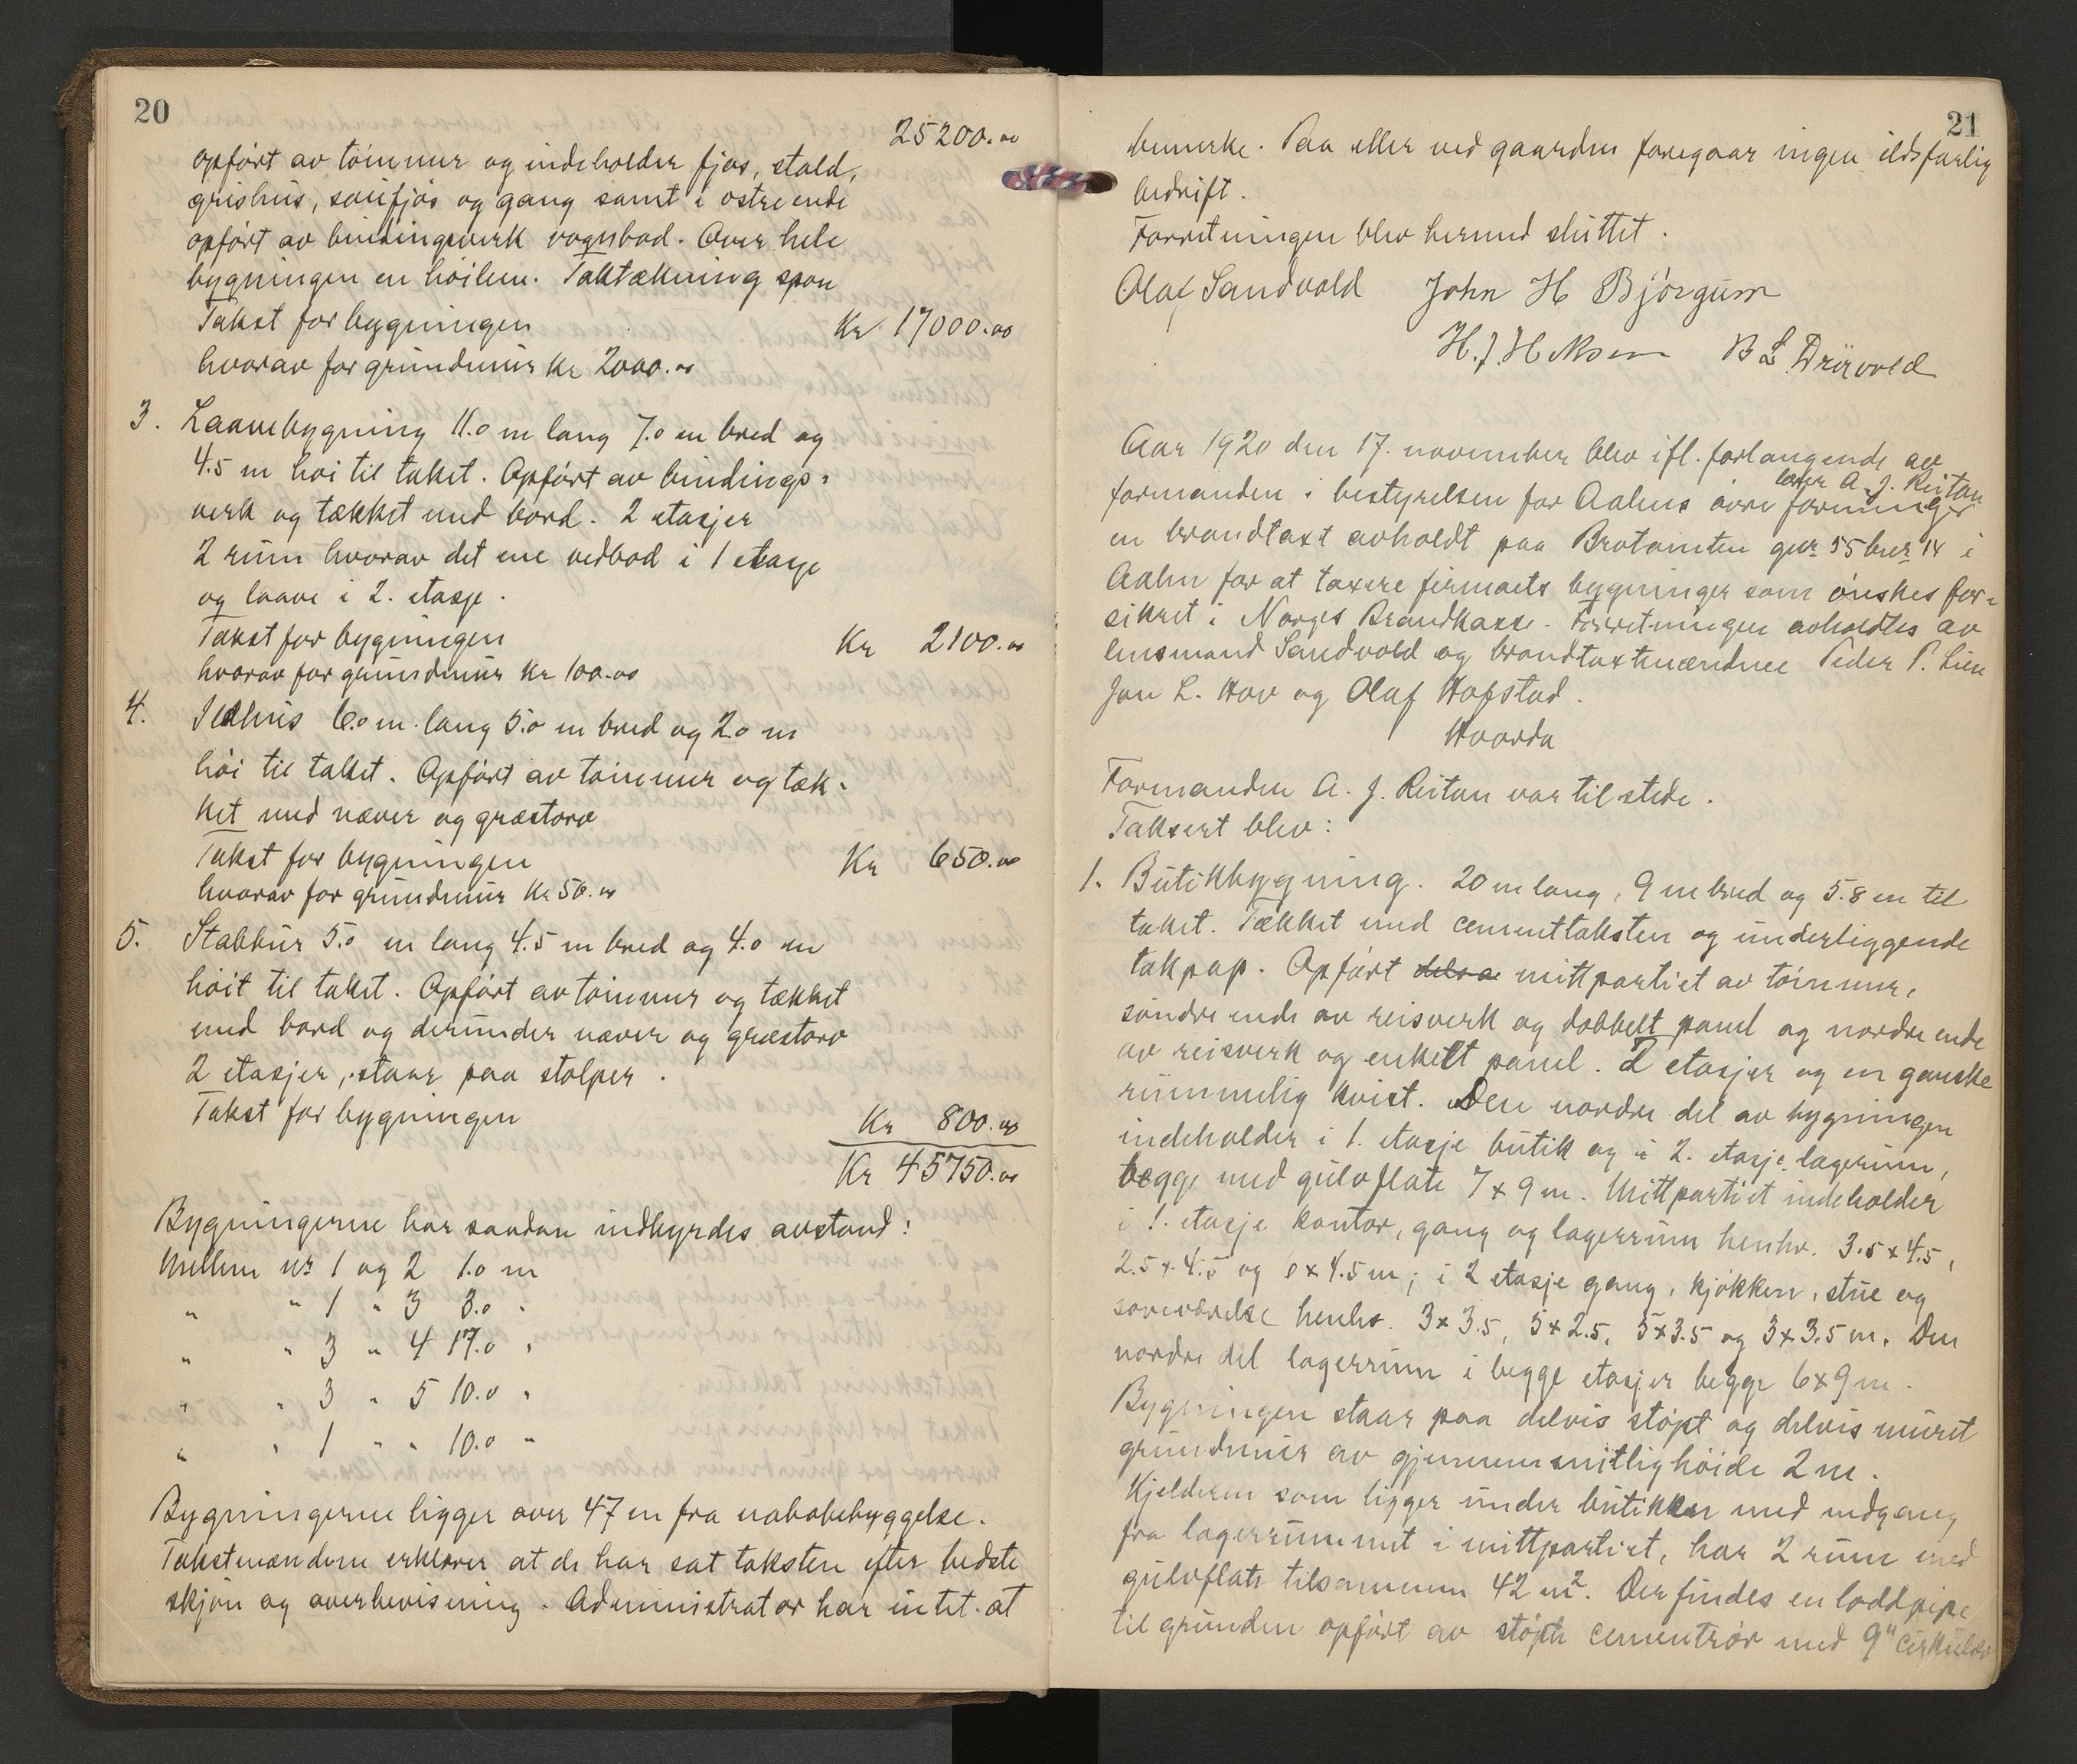 20
25200.00
opført av tømmer og indeholder fjøs, stald,
grishus, saufjøs og gang samt i østre ende
opført av bindingsverk vognbod. Over hele
bygningen en høilem. Taktækning spon
Takst for bygningen Kr 17000.00
hvorav for grundmur Kr 2000.00
3. Laavebygning 11.0 m lang 7.0 m bred og
4.5 m høi til taket. Opført av bindings-
verk og tækket med bord. 2 etasjer
2 rum hvorav det ene vedbod i 1 etasje
og laave i 2. etasje.
Takst for bygningen Kr 2100.00
hvorav for grundmur Kr 100.00
4. Ildhus 6.0 m lang 5.0 m bred og 2.0 m
høi til taket. Opført av tømmer og tæk-
ket med næver og græstorv
Takst for bygningen Kr 650.00
hvorav for grundmur Kr 50.00
5. Stabbur 5.0 m lang 4.5 m bred og 4.0 m
høit til taket. Opført av tømmer og tækket
med bord og derunder næver og græstorv
2 etasjer, staar paa stolper.
Takst for bygningen
Kr 800.00
Kr 45750.00
Bygningerne har saadan indbyrdes avstand:
Mellem nr 1 og 2 1.0 m
" " 1 " 3 8.0 "
" " 3 " 4 17.0 "
" " 3 " 5 10.0 "
" " 1 " " 10.0 "
Bygningerne ligger over 47 m fra nabobebyggelse.
Takstmændene erklærer at de har sat taksten efter bedste
skjøn og overbevisning. Administrator har intet at
21
bemerke. Paa eller ved gaarden foregaar ingen ildsfarlig
bedrift.
Forretningen blev hermed sluttet.
Olaf Sandvold John H Bjørgum
B L Drivvold
Aar 1920 den 17. november blev ifl. forlangende av
formanden i bestyrelsen for Aalens øvre forening
A. J. Reitan
en brandtaxt avholdt paa Brotomten gnr 55 bnr 14 i
Aalen for at taxere firmaets bygninger som ønskes for-
sikret i Norges Brandkasse. Forretningen avholdtes av
lensmand Sandvold og brandtaxtmændene Peder P. Lien
Jon L. Hov og Olaf Hofstad.
Hvorda
Formanden A. J. Reitan var tilstede.
Taksert blev:
1. Butikbygning. 20 m lang, 9 m bred og 5.8 m til
taket. Tækket med cementtaksten og underliggende
takpap. Opført midtpartiet av tømmer,
søndre ende av reisverk og dobbelt panel og nordre ende
av reisverk og enkelt panel. 2 etasjer og en ganske
rummelig kvist. Den nordre del av bygningen
indeholder i 1. etasje butik og i 2. etasje lagerrum,
begge med gulvflate 7x9 m. Mittpartiet indeholder
i 1. etasje kontor, gang og lagerrum henhv. 3.5x4.5,
2.5x4.5 og 6x4.5 m; i 2 etasje gang, kjøkken, stue og
soveværelse henhv. 3x3.5, 5x2.5, 5x3.5 og 3x3.5 m. Den
nordre del lagerrum i begge etasjer begge 6x9 m.
Bygningen staar paa delvis støpt og delvis muret
grundmur av gjennemsnitlig høide 2 m.
Kjelderen som ligger under butikken med nedgang
fra lagerrummet i mittpartiet, har 2 rum med
gulvflate tilsammen 42 m². Der findes en loddpipe
til grunden opført av støpte cementrør med 9" cirkulær